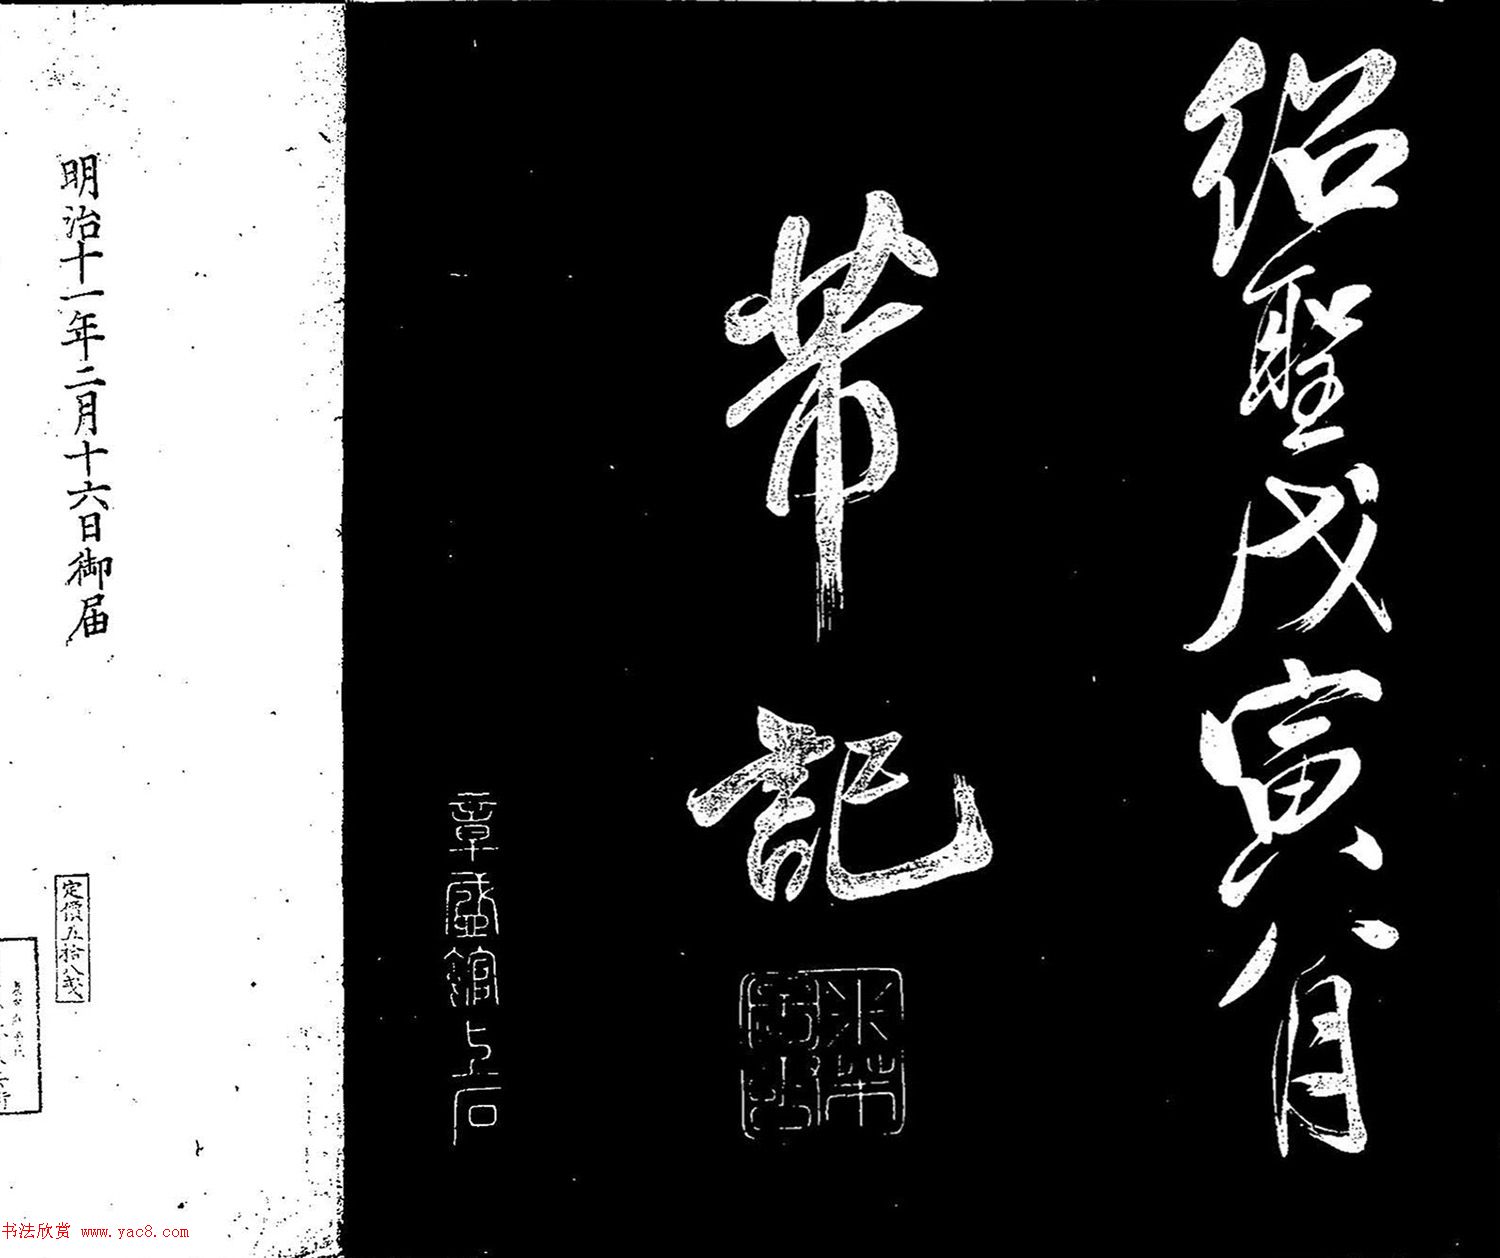 绍聖戊寅八月
芾記
米芾
章盛館上石
明治十一年二月十六日御届
定價五拾八戔
书法欣赏 www.yac8.com